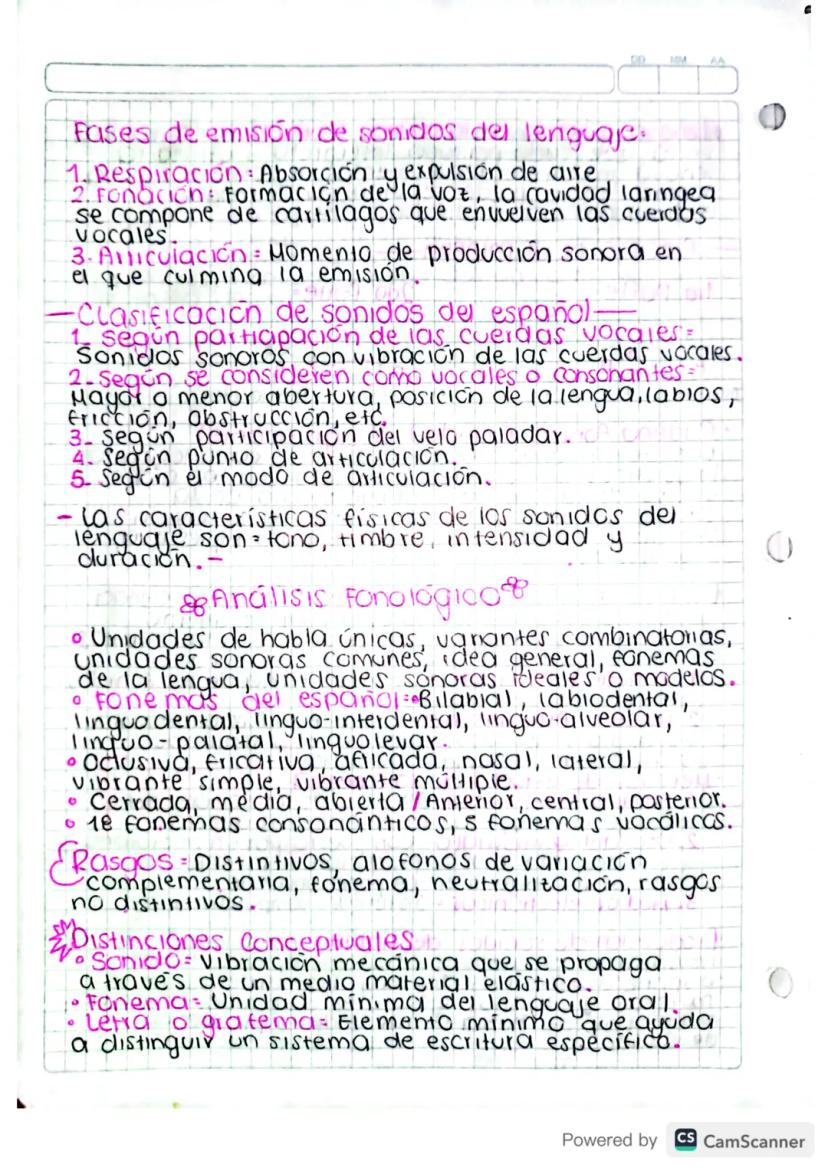 DD MM AA
Fases de emisión de sonidos del lenguaje.
1. Respiración: Absorción y expulsión de aire
2. Fonación: Formación de la voz, la cavidad laringea
se compone de cartílagos que envuelven las cuerdas
vocales.
3. Articulación: Momento de producción sonora en
el que culmina la emisión.
—Clasificación de sonidos del español—
1. Según participación de las cuerdas vocales:
Sonidos sonoros con vibración de las cuerdas vocales.
2. Según se consideren como vocales o consonantes:
Mayor o menor abertura, posición de la lengua, labios,
fricción, obstrucción, etc.
3. Según participación del velo paladar.
4. Según punto de articulación.
5. Según el modo de articulación.
- Las características físicas de los sonidos del
lenguaje son: tono, timbre, intensidad y
duración. -
Análisis Fonológico
• Unidades de habla únicas, variantes combinatorias,
unidades sonoras comunes, idea general, fonemas
de la lengua, unidades sonoras ideales o modelos.
• Fonemas del español: • Bilabial, labiodental,
linguodental, linguo-interdental, linguo-alveolar,
linguo-palatal, linguolevar.
• Oclusiva, fricativa, africada, nasal, lateral,
vibrante simple, vibrante múltiple.
• Cerrada, media, abierta / Anterior, central, posterior.
• 18 fonemas consonánticos, 5 fonemas vocálicos.
Rasgos: Distintivos, alofonos de variación
complementaria, fonema, neutralitación, rasgos
no distintivos.
Distinciones Conceptuales
• Sonido: Vibración mecánica que se propaga
a través de un medio material elástico.
• Fonema: Unidad mínima del lenguaje oral.
• Letra o grafema: Elemento mínimo que ayuda
a distinguir un sistema de escritura específico.
Powered by CS CamScanner